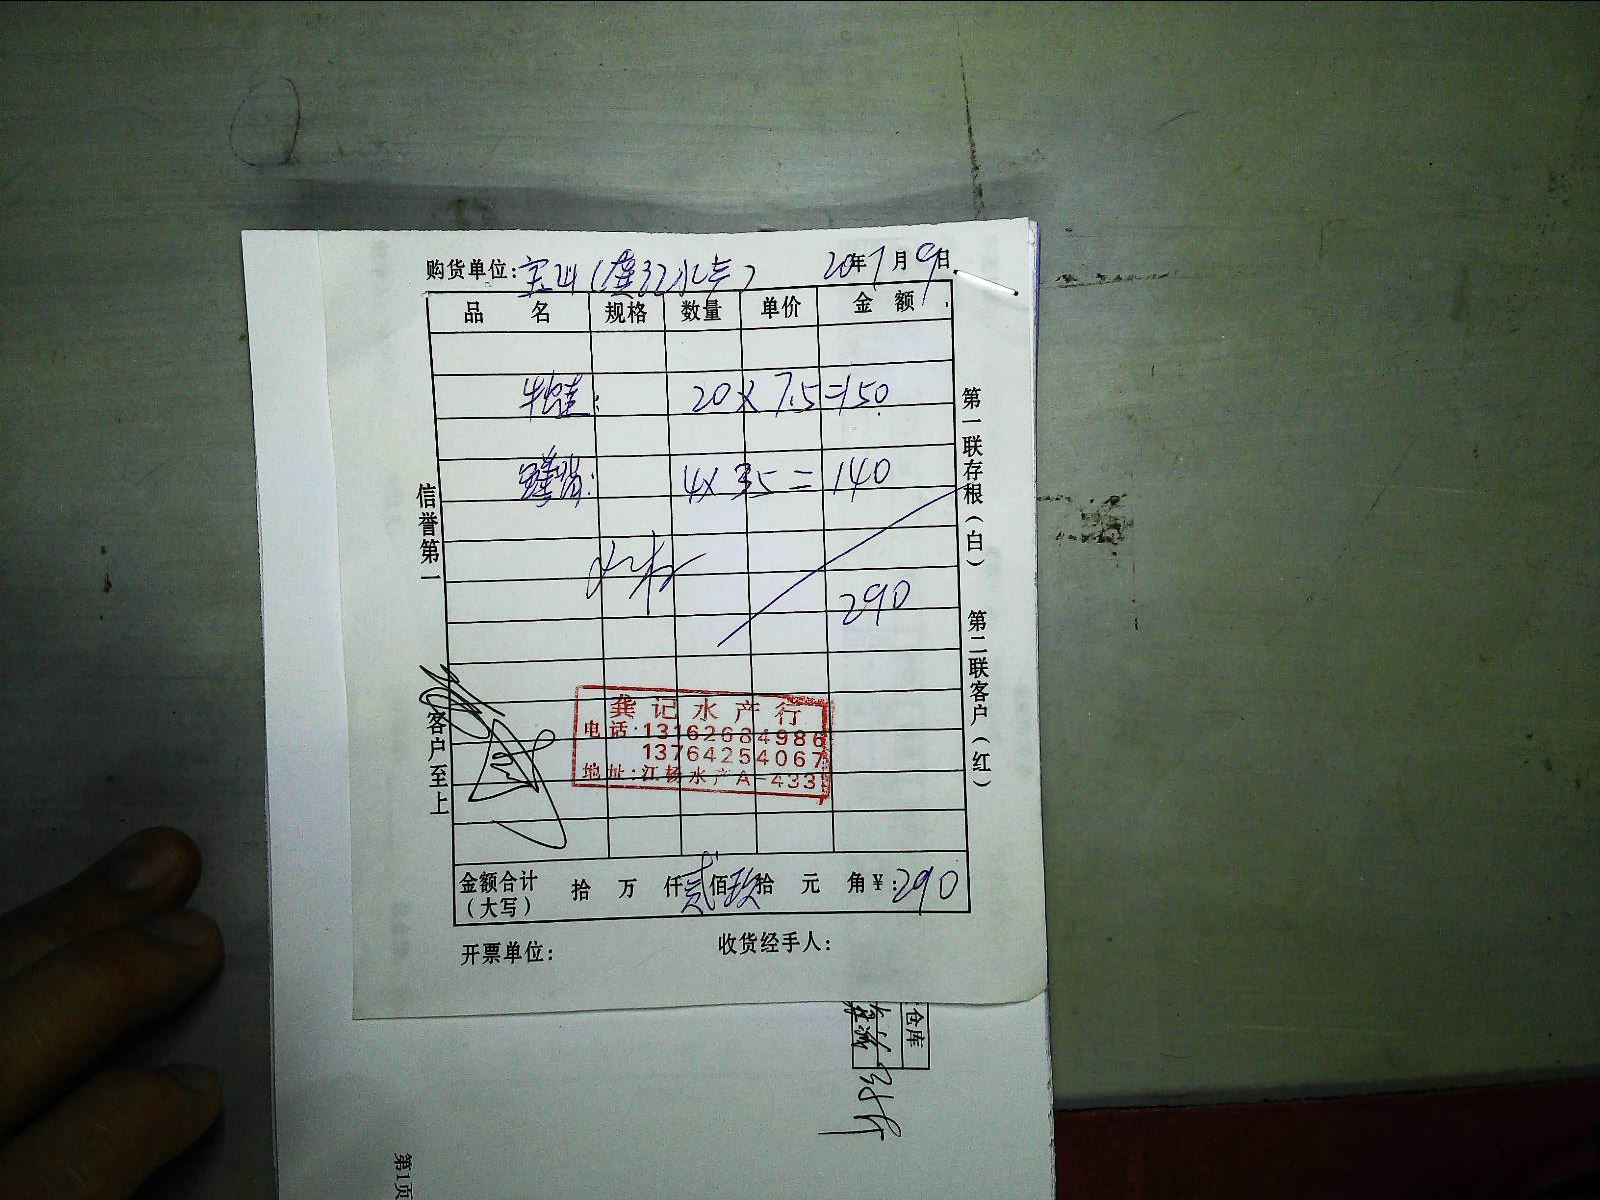 购货单位:宝山(龚记水产) 20年7月9日
品 名 规格 数量 单价 金 额
牛蛙: 20×7.5=150
4×35=140
290
信誉第一 客户至上
第一联存根(白) 第二联客户(红)
龚记水产行
电话:13162684986
13764254067
地址:江杨水产A-433
金额合计(大写) 拾 万 仟贰佰玖拾 元 角¥:290
开票单位: 收货经手人:
仓库
第1页